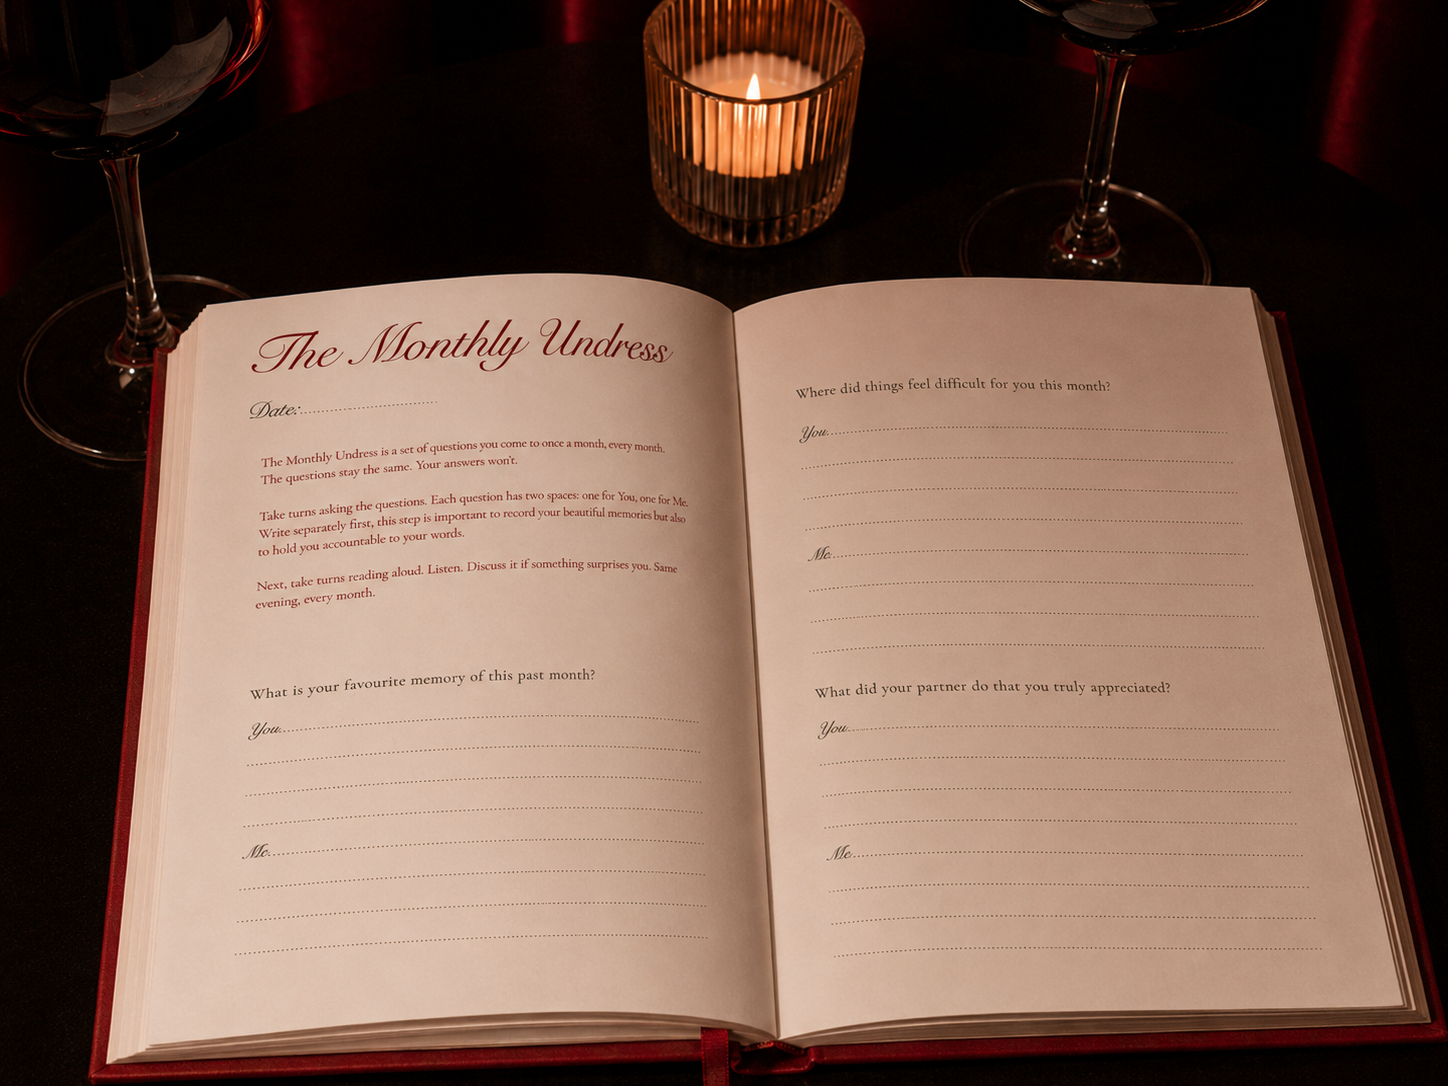 The Monthly Undress
Date:
The Monthly Undress is a set of questions you come to once a month, every month.
The questions stay the same. Your answers won't.
Take turns asking the questions. Each question has two spaces: one for You, one for Me.
Write separately first, this step is important to record your beautiful memories but also
to hold you accountable to your words.
Next, take turns reading aloud. Listen. Discuss it if something surprises you. Same
evening, every month.
What is your favourite memory of this past month?
You
Me
Where did things feel difficult for you this month?
You
Me
What did your partner do that you truly appreciated?
You
Me